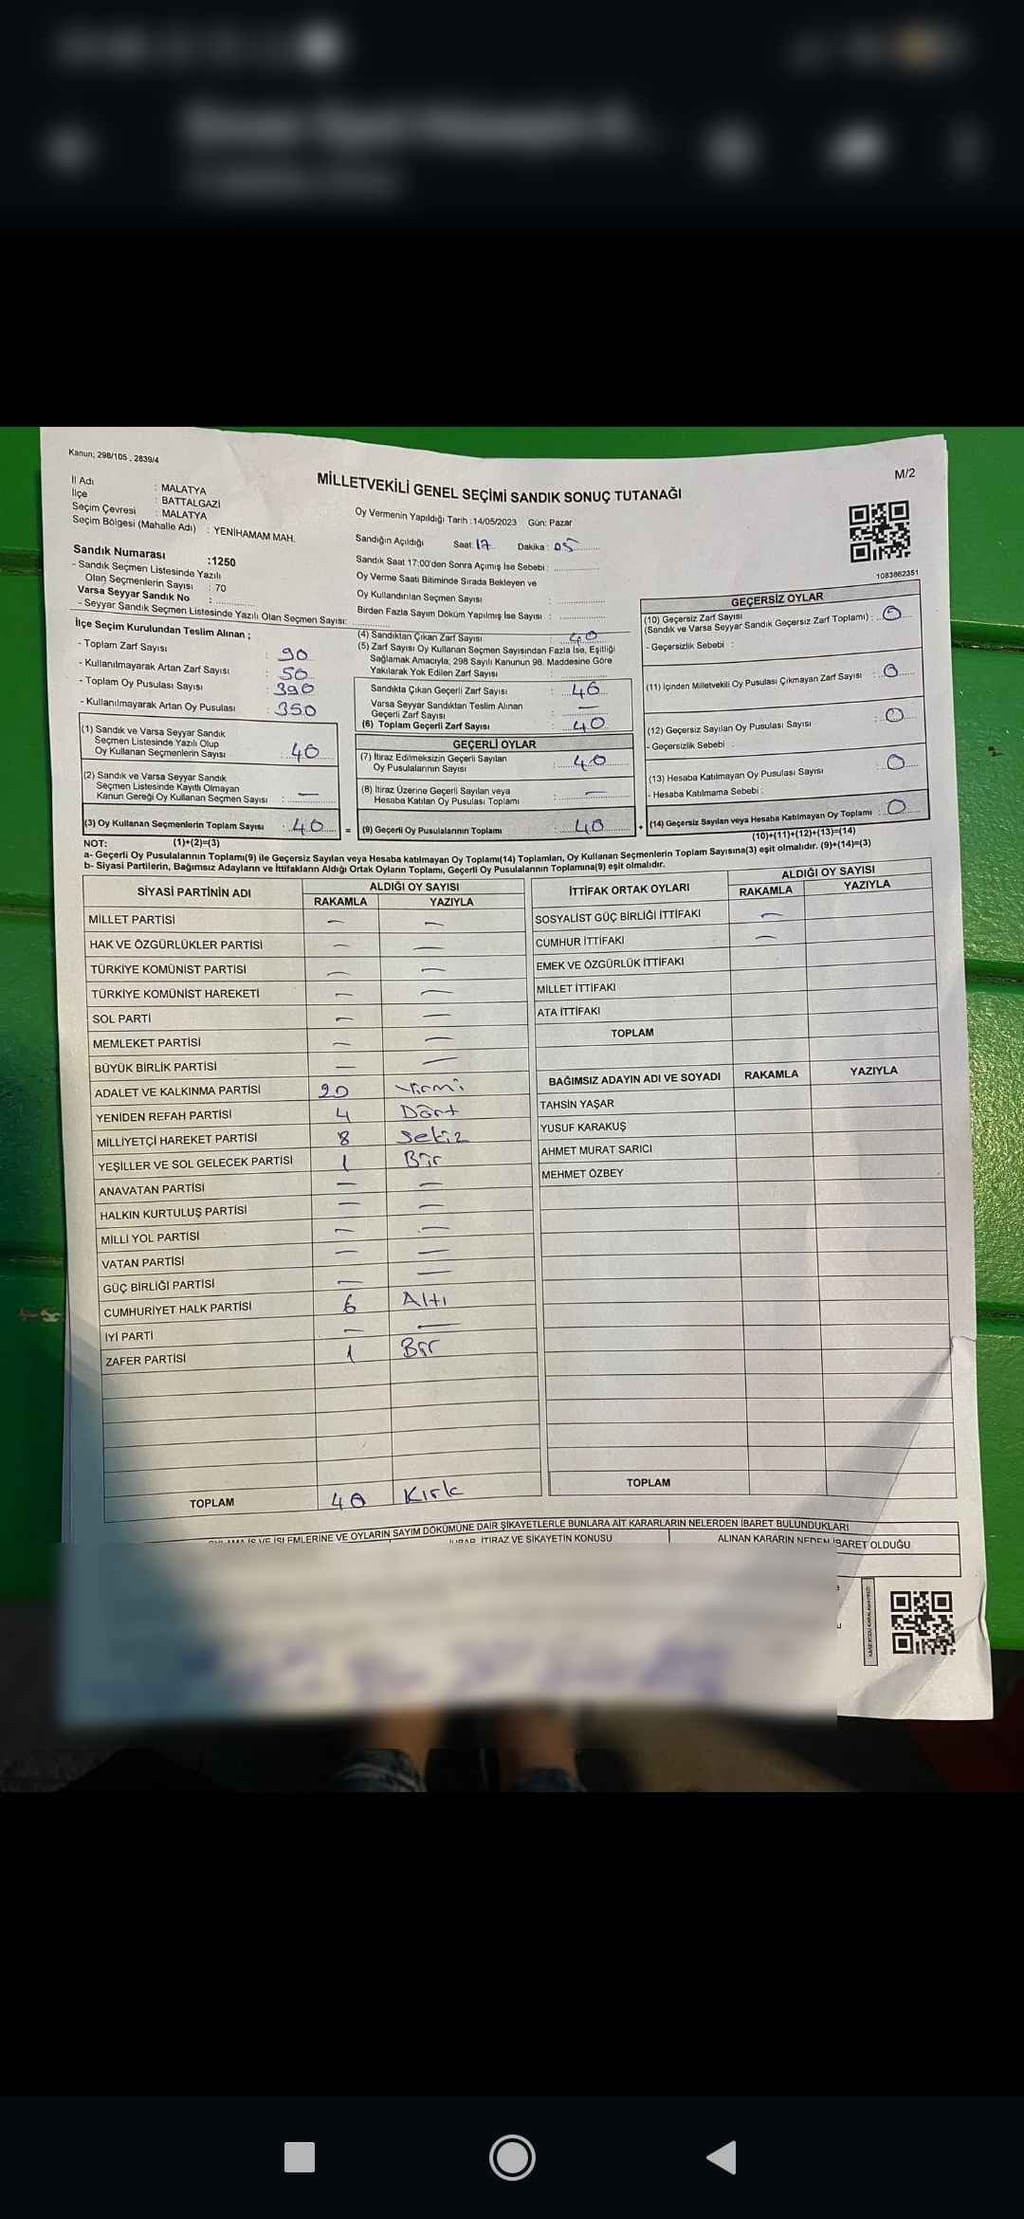 Kanun; 298/105 , 2839/4
M/2
MİLLETVEKİLİ GENEL SEÇİMİ SANDIK SONUÇ TUTANAĞI
İl Adı : MALATYA
İlçe : BATTALGAZİ
Seçim Çevresi : MALATYA
Seçim Bölgesi (Mahalle Adı) : YENİHAMAM MAH.
Sandık Numarası :1250
- Sandık Seçmen Listesinde Yazılı
Olan Seçmenlerin Sayısı : 70
Varsa Seyyar Sandık No :
- Seyyar Sandık Seçmen Listesinde Yazılı Olan Seçmen Sayısı:
Oy Vermenin Yapıldığı Tarih :14/05/2023 Gün: Pazar
Sandığın Açıldığı Saat: 17 Dakika : 05
Sandık Saat 17:00'den Sonra Açımış İse Sebebi :
Oy Verme Saati Bitiminde Sırada Bekleyen ve
Oy Kullandırılan Seçmen Sayısı :
Birden Fazla Sayım Döküm Yapılmış İse Sayısı :
1083862351
İlçe Seçim Kurulundan Teslim Alınan ;
- Toplam Zarf Sayısı : 90
- Kullanılmayarak Artan Zarf Sayısı : 50
- Toplam Oy Pusulası Sayısı : 390
- Kullanılmayarak Artan Oy Pusulası : 350
(1) Sandık ve Varsa Seyyar Sandık
Seçmen Listesinde Yazılı Olup
Oy Kullanan Seçmenlerin Sayısı : 40
(2) Sandık ve Varsa Seyyar Sandık
Seçmen Listesinde Kayıtlı Olmayan
Kanun Gereği Oy Kullanan Seçmen Sayısı : —
(3) Oy Kullanan Seçmenlerin Toplam Sayısı : 40 =
(1)+(2)=(3)
(4) Sandıktan Çıkan Zarf Sayısı : 40
(5) Zarf Sayısı Oy Kullanan Seçmen Sayısından Fazla İse, Eşitliği
Sağlamak Amacıyla, 298 Sayılı Kanunun 98. Maddesine Göre
Yakılarak Yok Edilen Zarf Sayısı :
Sandıkta Çıkan Geçerli Zarf Sayısı : 40
Varsa Seyyar Sandıktan Teslim Alınan
Geçerli Zarf Sayısı : —
(6) Toplam Geçerli Zarf Sayısı : 40
GEÇERLİ OYLAR
(7) İtiraz Edilmeksizin Geçerli Sayılan
Oy Pusulalarının Sayısı : 40
(8) İtiraz Üzerine Geçerli Sayılan veya
Hesaba Katılan Oy Pusulası Toplamı : —
(9) Geçerli Oy Pusulalarının Toplamı : 40 +
GEÇERSİZ OYLAR
(10) Geçersiz Zarf Sayısı
(Sandık ve Varsa Seyyar Sandık Geçersiz Zarf Toplamı) : 0
- Geçersizlik Sebebi :
(11) İçinden Milletvekili Oy Pusulası Çıkmayan Zarf Sayısı : 0
(12) Geçersiz Sayılan Oy Pusulası Sayısı : 0
- Geçersizlik Sebebi :
(13) Hesaba Katılmayan Oy Pusulası Sayısı : 0
- Hesaba Katılmama Sebebi :
(14) Geçersiz Sayılan veya Hesaba Katılmayan Oy Toplamı : 0
(10)+(11)+(12)+(13)=(14)
NOT:
a- Geçerli Oy Pusulalarının Toplamı(9) ile Geçersiz Sayılan veya Hesaba katılmayan Oy Toplamı(14) Toplamları, Oy Kullanan Seçmenlerin Toplam Sayısına(3) eşit olmalıdır. (9)+(14)=(3)
b- Siyasi Partilerin, Bağımsız Adayların ve İttifakların Aldığı Ortak Oyların Toplamı, Geçerli Oy Pusulalarının Toplamına(9) eşit olmalıdır.
SİYASİ PARTİNİN ADI ALDIĞI OY SAYISI
RAKAMLA YAZIYLA
MİLLET PARTİSİ — —
HAK VE ÖZGÜRLÜKLER PARTİSİ — —
TÜRKİYE KOMÜNİST PARTİSİ — —
TÜRKİYE KOMÜNİST HAREKETİ — —
SOL PARTİ — —
MEMLEKET PARTİSİ — —
BÜYÜK BİRLİK PARTİSİ — —
ADALET VE KALKINMA PARTİSİ 20 Yirmi
YENİDEN REFAH PARTİSİ 4 Dört
MİLLİYETÇİ HAREKET PARTİSİ 8 Sekiz
YEŞİLLER VE SOL GELECEK PARTİSİ 1 Bir
ANAVATAN PARTİSİ — —
HALKIN KURTULUŞ PARTİSİ — —
MİLLİ YOL PARTİSİ — —
VATAN PARTİSİ — —
GÜÇ BİRLİĞİ PARTİSİ — —
CUMHURİYET HALK PARTİSİ 6 Altı
İYİ PARTİ — —
ZAFER PARTİSİ 1 Bir
TOPLAM 40 Kırk
İTTİFAK ORTAK OYLARI ALDIĞI OY SAYISI
RAKAMLA YAZIYLA
SOSYALİST GÜÇ BİRLİĞİ İTTİFAKI —
CUMHUR İTTİFAKI —
EMEK VE ÖZGÜRLÜK İTTİFAKI
MİLLET İTTİFAKI
ATA İTTİFAKI
TOPLAM
BAĞIMSIZ ADAYIN ADI VE SOYADI RAKAMLA YAZIYLA
TAHSİN YAŞAR
YUSUF KARAKUŞ
AHMET MURAT SARICI
MEHMET ÖZBEY
TOPLAM
VE İŞLEMLERİNE VE OYLARIN SAYIM DÖKÜMÜNE DAİR ŞİKAYETLERLE BUNLARA AİT KARARLARIN NELERDEN İBARET BULUNDUKLARI
İTİRAZ VE ŞİKAYETİN KONUSU ALINAN KARARIN NEDEN İBARET OLDUĞU